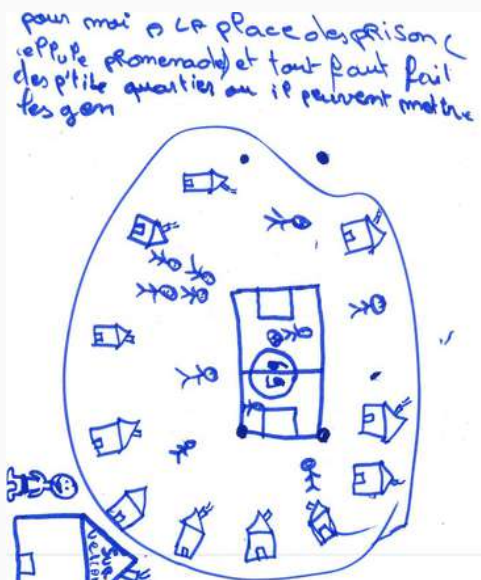 pour moi a LA place des prison (
cellule promenade) et tout faut fait
des p'tite quartier ou il peuvent mettre
les gen